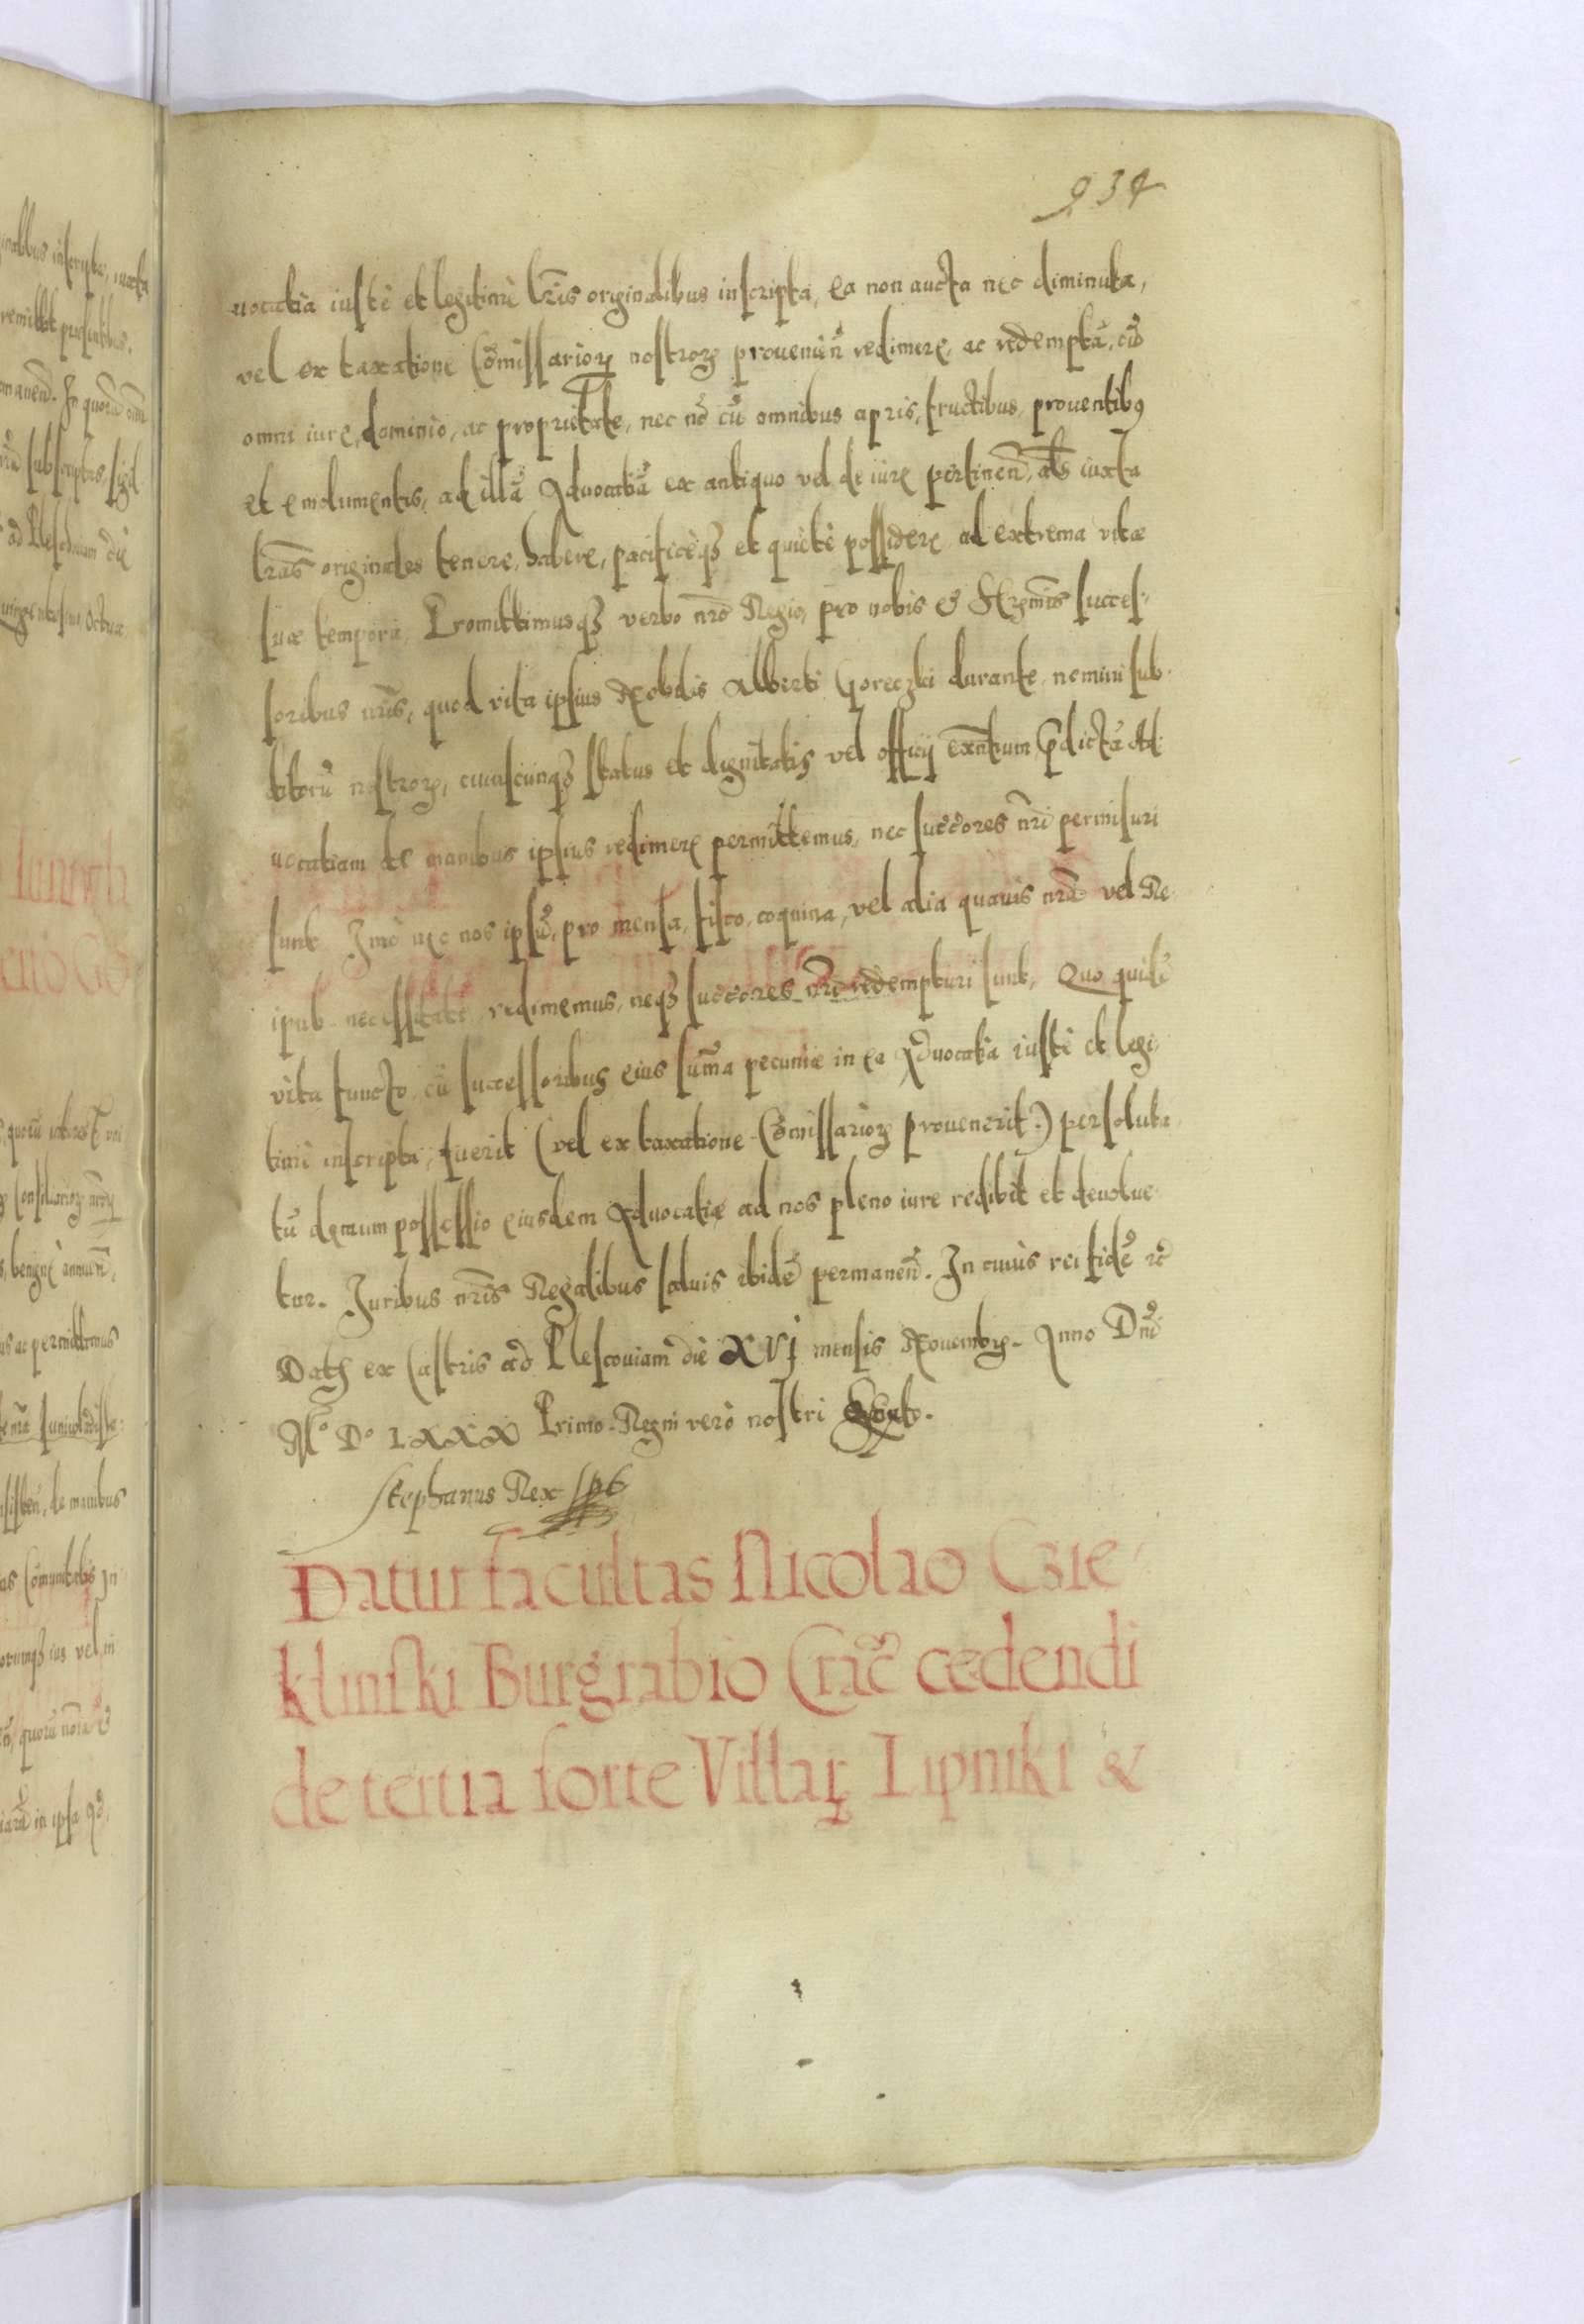 934
uocatia iustè et legitimè lr̃is originalibus inscripta, ea non aucta nec diminuta,
vel ex taxatione Com̃issarioꝝ nostroꝝ prouenien̄ redimere, ac redemptā, cū
omni iure, dominio, ac proprietate, nec nō cū omnibus agris, fructibus, prouentibꝯ
et emolumentis, ad illā Aduocatiā ex antiquo vel de iure pertinen̄, als̃ iuxta
lr̃as originales tenere, habere, pacificèqꝫ et quietè possidere ad extrema vitæ
suæ tempora, Promittimusqꝫ verbo nr̃o Regio, pro nobis & Sereñmis succes-
soribus nr̃is, quod vita ipsius Nobilis Alberti Goreczki durante, nemini sub-
ditorū nostroꝝ, cuiuscunqꝫ status et dignitatis vel officij exñtium p̄dictā Ad-
uocatiam de manibus ipsius redimere permittemus, nec succōres nr̃i permisuri
sunt Imò nec nos ipsū, pro mensa, fisco, coquina, vel alia quauis nr̃a vel Re-
ipub. necessitate redimemus, neqꝫ succōres nr̃i redempturi sunt, Quo quidē
vita functo, cū successoribus eius sum̃a pecuniæ in ea Aduocatia iustè et legi-
timè inscripta, fuerit (vel ex taxatione Com̃issarioꝝ prouenerit.) persoluta
tū demum possessio eiusdem Aduocatiæ ad nos pleno iure redibit et deuolue-
tur. Iuribus nr̃is Regalibus saluis ibidē permanen̄. In cuius rei fidē ꝛc̃
Datꝫ ex Castris ad Plescouiam die XVI mensis Nouembrꝫ. Anno Dñi
Mº Dº LXXX Primo. Regni verò nostri Sexto.
Stephanus Rex sst
Datur facultas Nicolao Czie-
klinski Burgrabio Crac̃ cedendi
de tertia sorte Villaꝝ Lipniki &